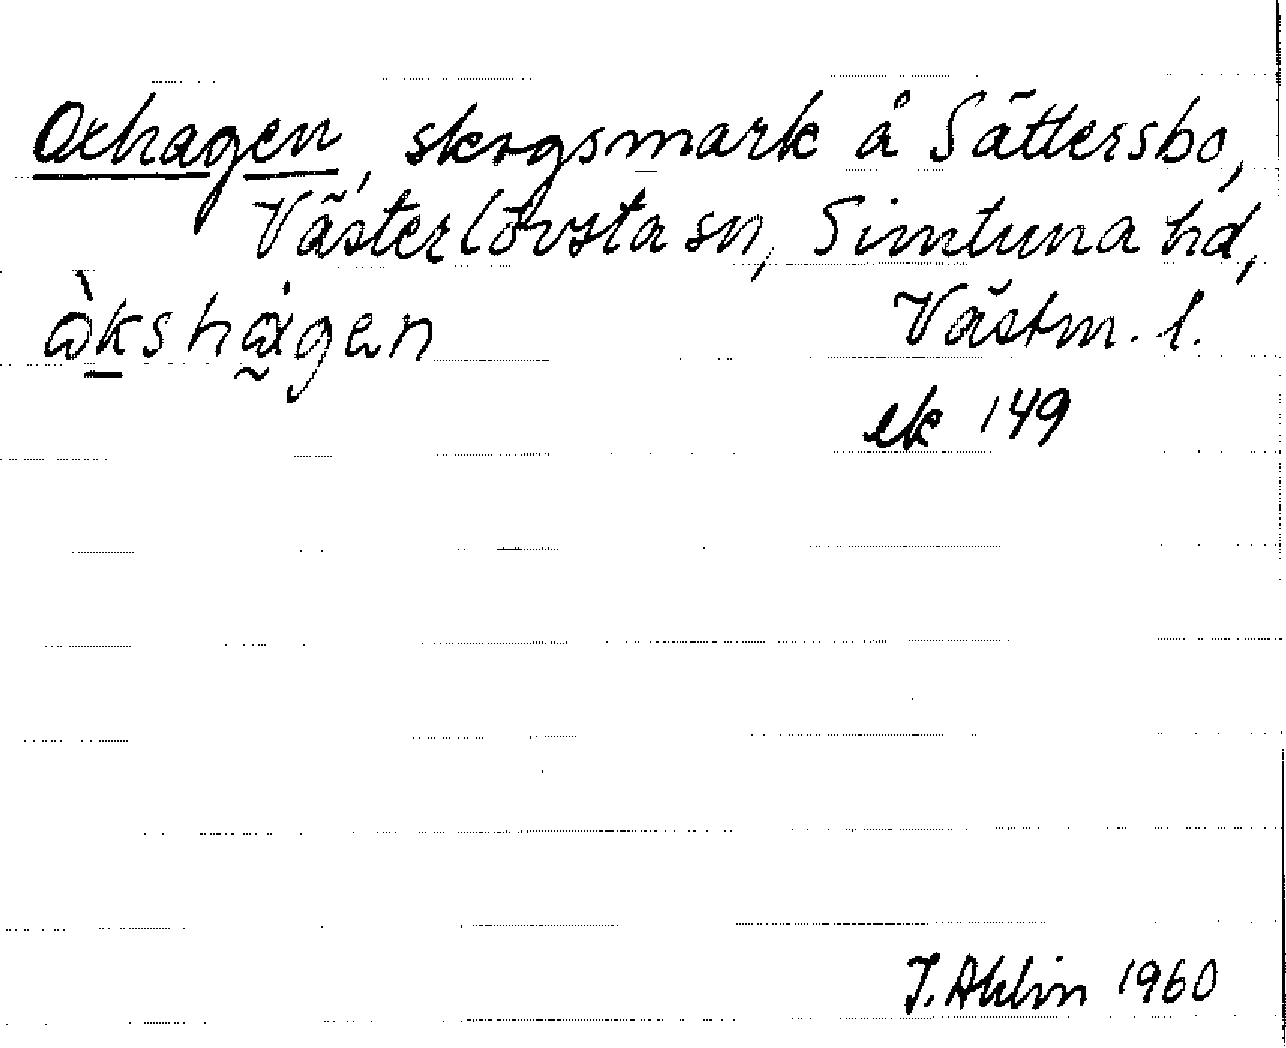 Oxhagen, skogsmark å Sättersbo,
Västerlövsta sn, Simtuna hd,
òkshȧgen Västm. l.
ek 149
J. Ahlin 1960